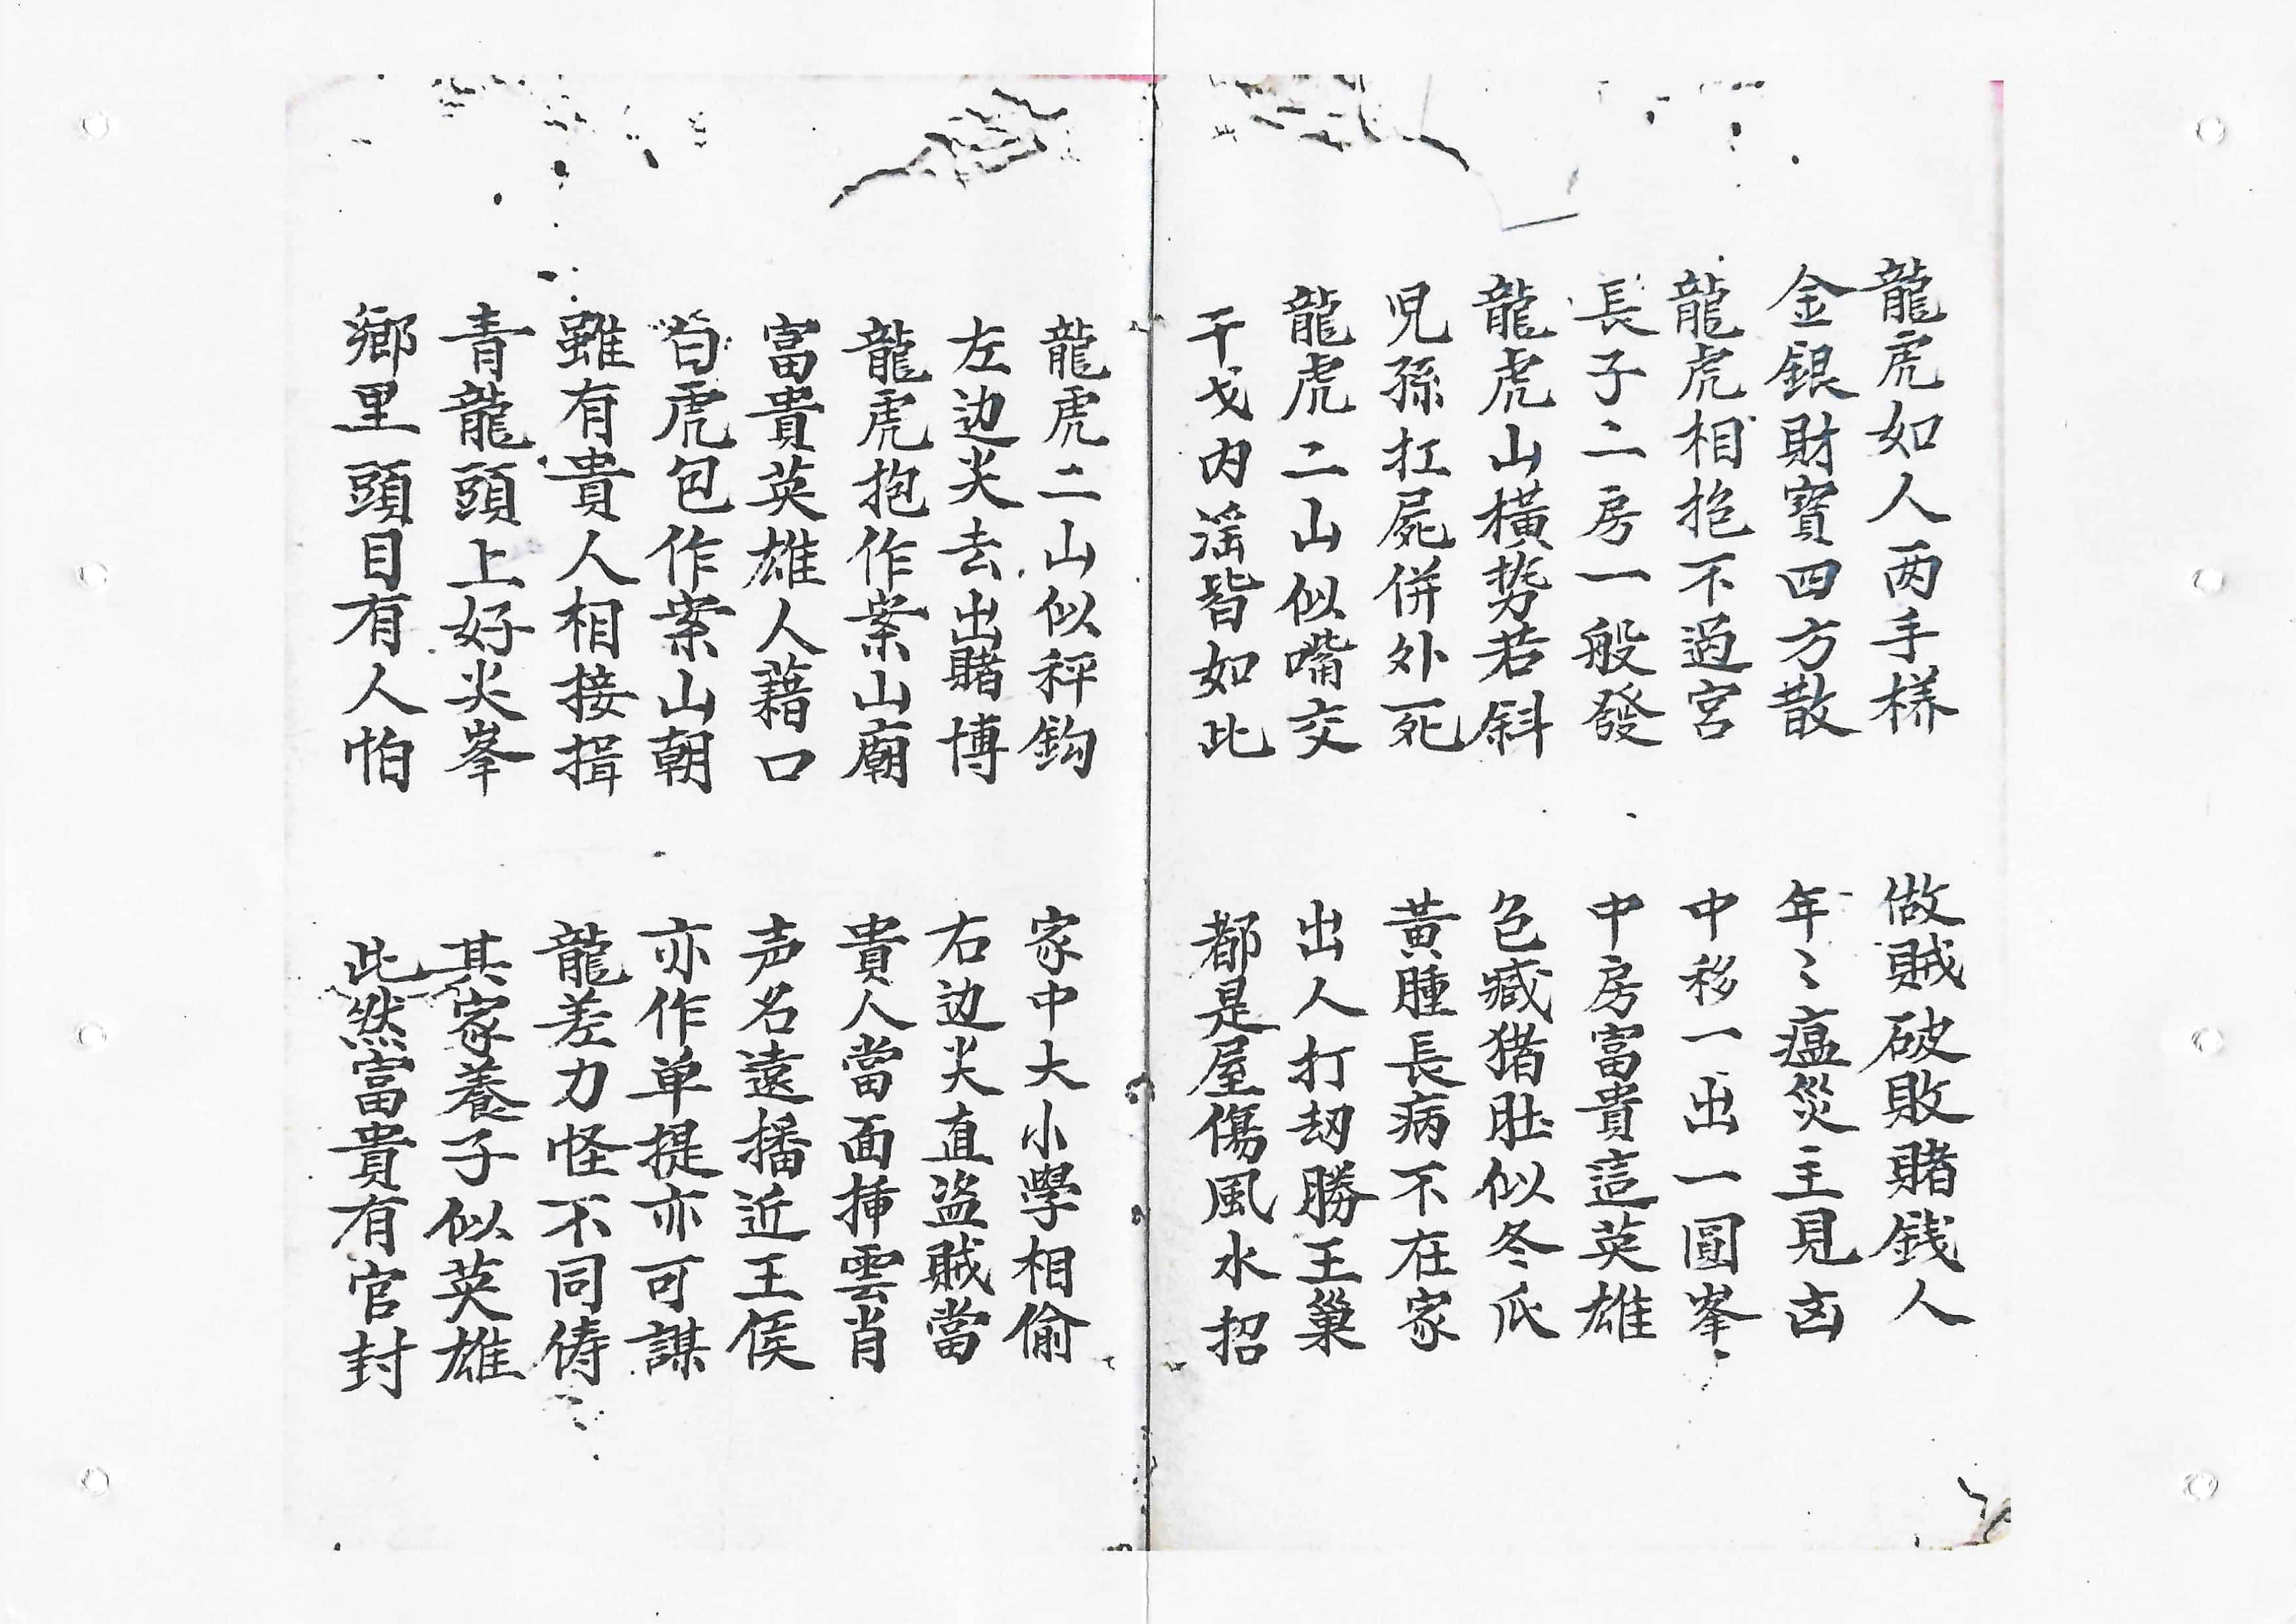 龍虎如人两手樣　做賊破敗賭錢人
金銀財寳四方散　年〻瘟災主見凶
龍虎相抱不過宮　中移一出一圓峯
長子二房一般發　中房富貴這英雄
龍虎山橫势若斜　色臧猪肚似冬瓜
児孫扛屍併外死　黃腫長病不在家
龍虎二山似嘴交　出人打刼勝王巢
干戈内滛皆如此　都是屋傷風水招
龍虎二山似秤鈎　家中大小學相偷
左边尖去出賭博　右边尖直盜賊當
龍虎抱作案山廟　貴人當面揷雲肖
富貴英雄人藉口　声名遠播近王侯
白虎包作案山朝　亦作单提亦可謀
雖有貴人相接揖　龍差力怪不同俦
青龍頭上好尖峯　其家養子似英雄
鄉里頭目有人怕　此然富貴有官封